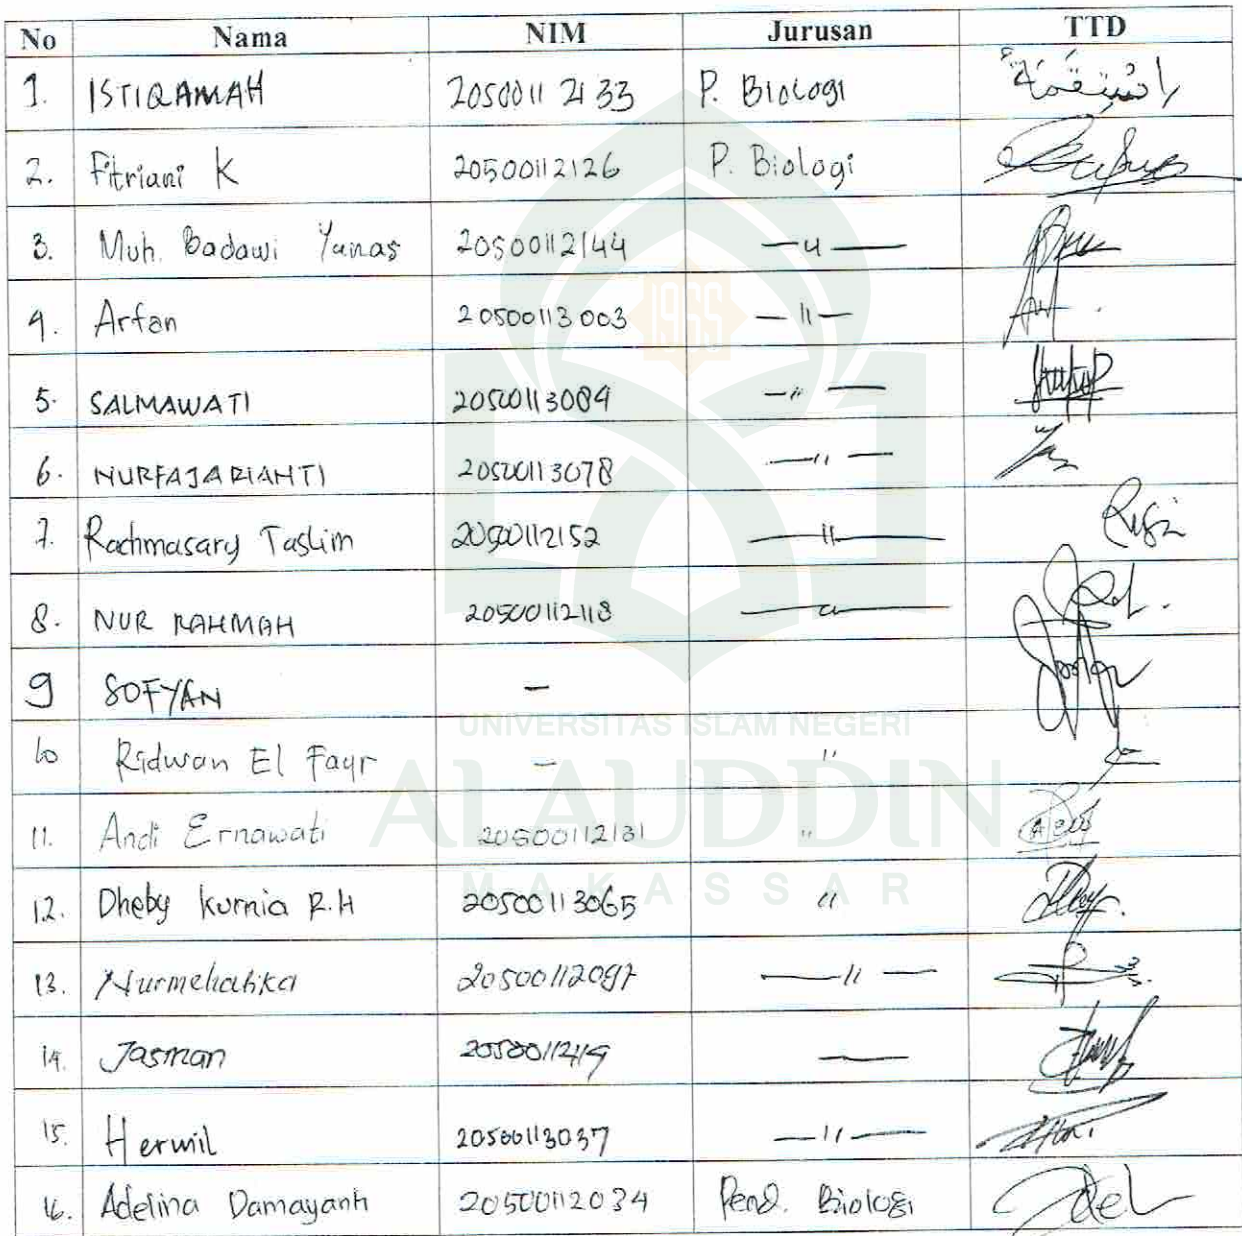 No Nama NIM Jurusan TTD
1. ISTIQAMAH 20500112133 P. Biologi اِسْتِقَمَةٌ
2. Fitriani K 20500112126 P. Biologi
3. Muh. Badawi Yunas 20500112144 — 〃 —
4. Arfan 20500113003 — 〃 —
5. SALMAWATI 20500113084 — 〃 —
6. NURFAJARIANTI 20500113078 — 〃 —
7. Rachmasary Taslim 20500112152 — 〃 —
8. NUR RAHMAH 20500112118 — 〃 —
9 SOFYAN -
10 Ridwan El Fayr - 〃
11. Andi Ernawati 20500112131 〃
12. Dheby Kurnia R.H 20500113065 〃
13. 20500112097 — 〃 —
14. Jasman 20500112119 —
15. Hermil 20500113037 — 〃 —
16. Adelina Damayanti 20500112034 Pend. Biologi Adel
1965
UNIVERSITAS ISLAM NEGERI
ALAUDDIN
MAKASSAR